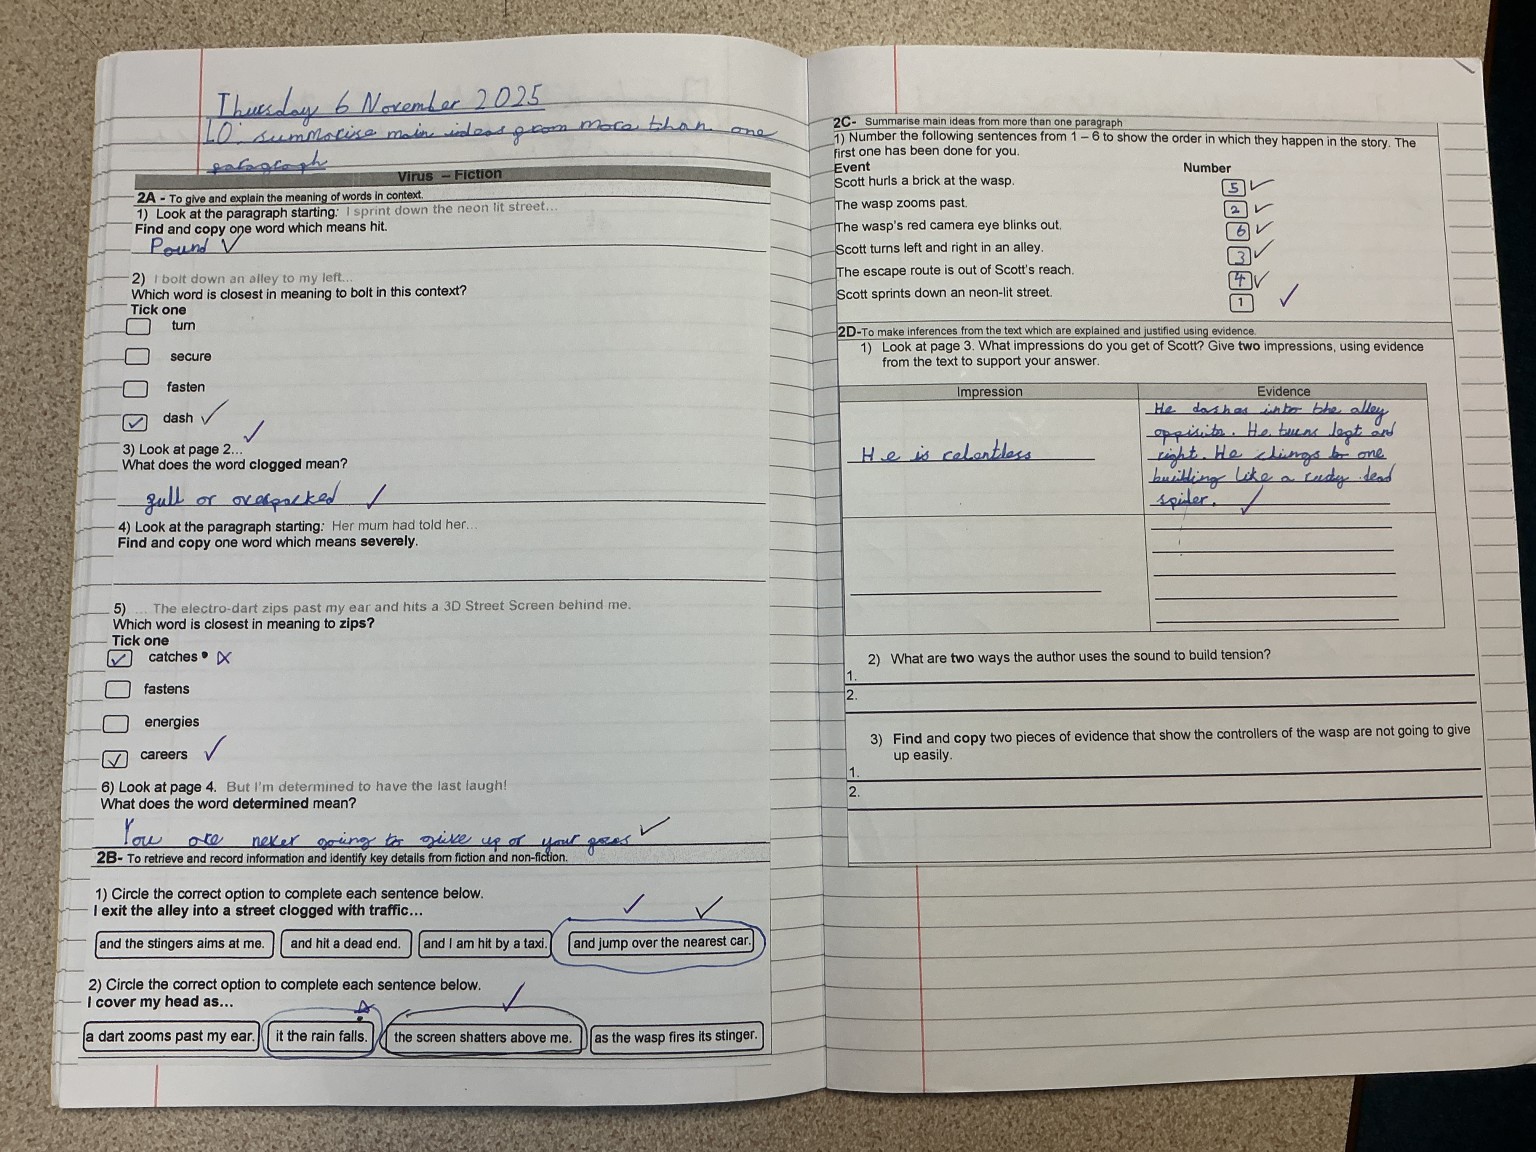 Thursday 6 November 2025
LO: summarise main ideas from more than one
paragraph
Virus – Fiction
2A - To give and explain the meaning of words in context.
1) Look at the paragraph starting: I sprint down the neon lit street...
Find and copy one word which means hit.
Pound ✓
2) I bolt down an alley to my left...
Which word is closest in meaning to bolt in this context?
Tick one
turn
secure
fasten
✓ dash ✓
3) Look at page 2...
What does the word clogged mean?
full or overpacked ✓
4) Look at the paragraph starting: Her mum had told her...
Find and copy one word which means severely.
5) ... The electro-dart zips past my ear and hits a 3D Street Screen behind me.
Which word is closest in meaning to zips?
Tick one
✓ catches
fastens
energies
✓ careers ✓
6) Look at page 4. But I'm determined to have the last laugh!
What does the word determined mean?
You are never going to give up or your ✓
2B- To retrieve and record information and identify key details from fiction and non-fiction.
1) Circle the correct option to complete each sentence below.
I exit the alley into a street clogged with traffic...
and the stingers aims at me. and hit a dead end. and I am hit by a taxi. and jump over the nearest car.
2) Circle the correct option to complete each sentence below.
I cover my head as...
a dart zooms past my ear. it the rain falls. the screen shatters above me. as the wasp fires its stinger.
2C- Summarise main ideas from more than one paragraph
1) Number the following sentences from 1 – 6 to show the order in which they happen in the story. The
first one has been done for you.
Event Number
Scott hurls a brick at the wasp. 5 ✓
The wasp zooms past. 2 ✓
The wasp's red camera eye blinks out. 6 ✓
Scott turns left and right in an alley. 3 ✓
The escape route is out of Scott's reach. 4 ✓
Scott sprints down an neon-lit street. 1 ✓
2D-To make inferences from the text which are explained and justified using evidence.
1) Look at page 3. What impressions do you get of Scott? Give two impressions, using evidence
from the text to support your answer.
Impression Evidence
He is relentless
He dashes into the alley
oppisite. He turns left and
right. He clings to one
building like a dead
spider. ✓
2) What are two ways the author uses the sound to build tension?
1.
2.
3) Find and copy two pieces of evidence that show the controllers of the wasp are not going to give
up easily.
1.
2.